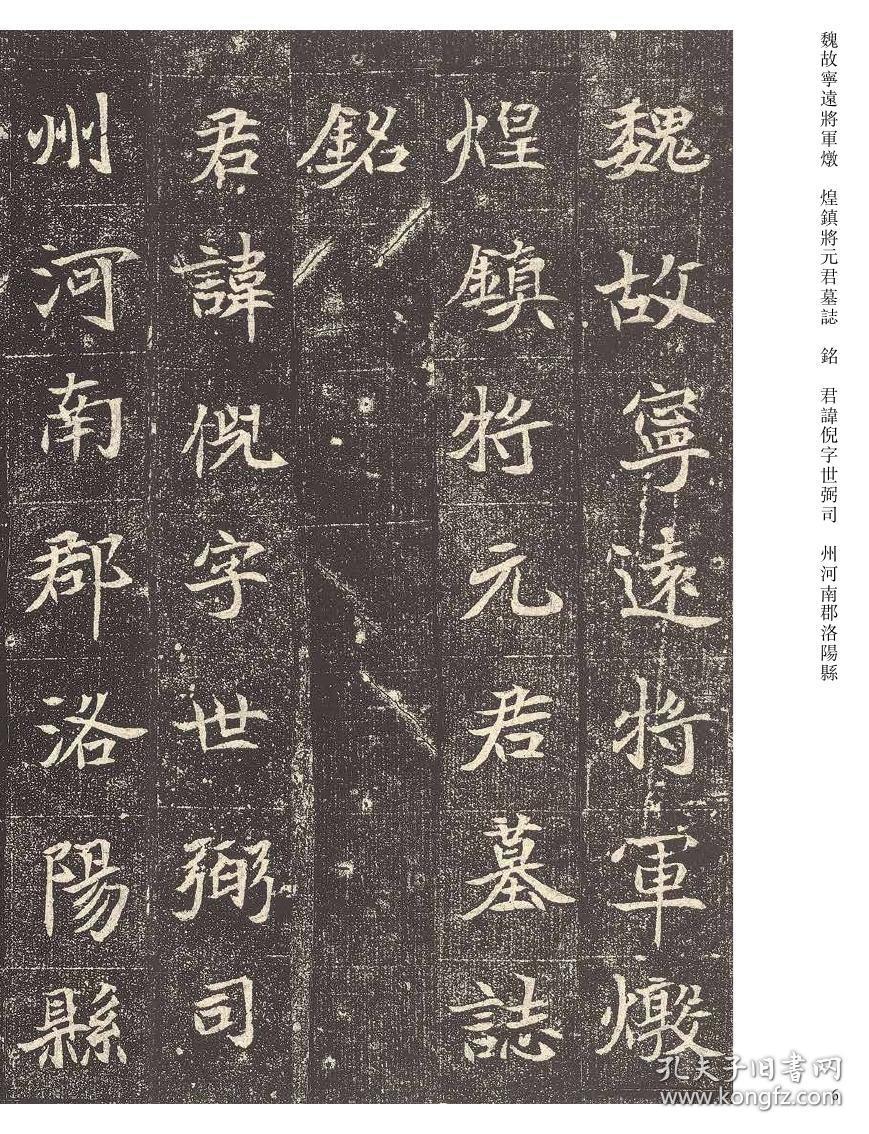 魏故寧遠將軍燉　煌鎮將元君墓誌　銘　君諱倪字世弼司　州河南郡洛陽縣
魏故寧遠將軍燉
煌鎮將元君墓誌
銘
君諱倪字世弼司
州河南郡洛陽縣
孔夫子旧书网
www.kongfz.com
6